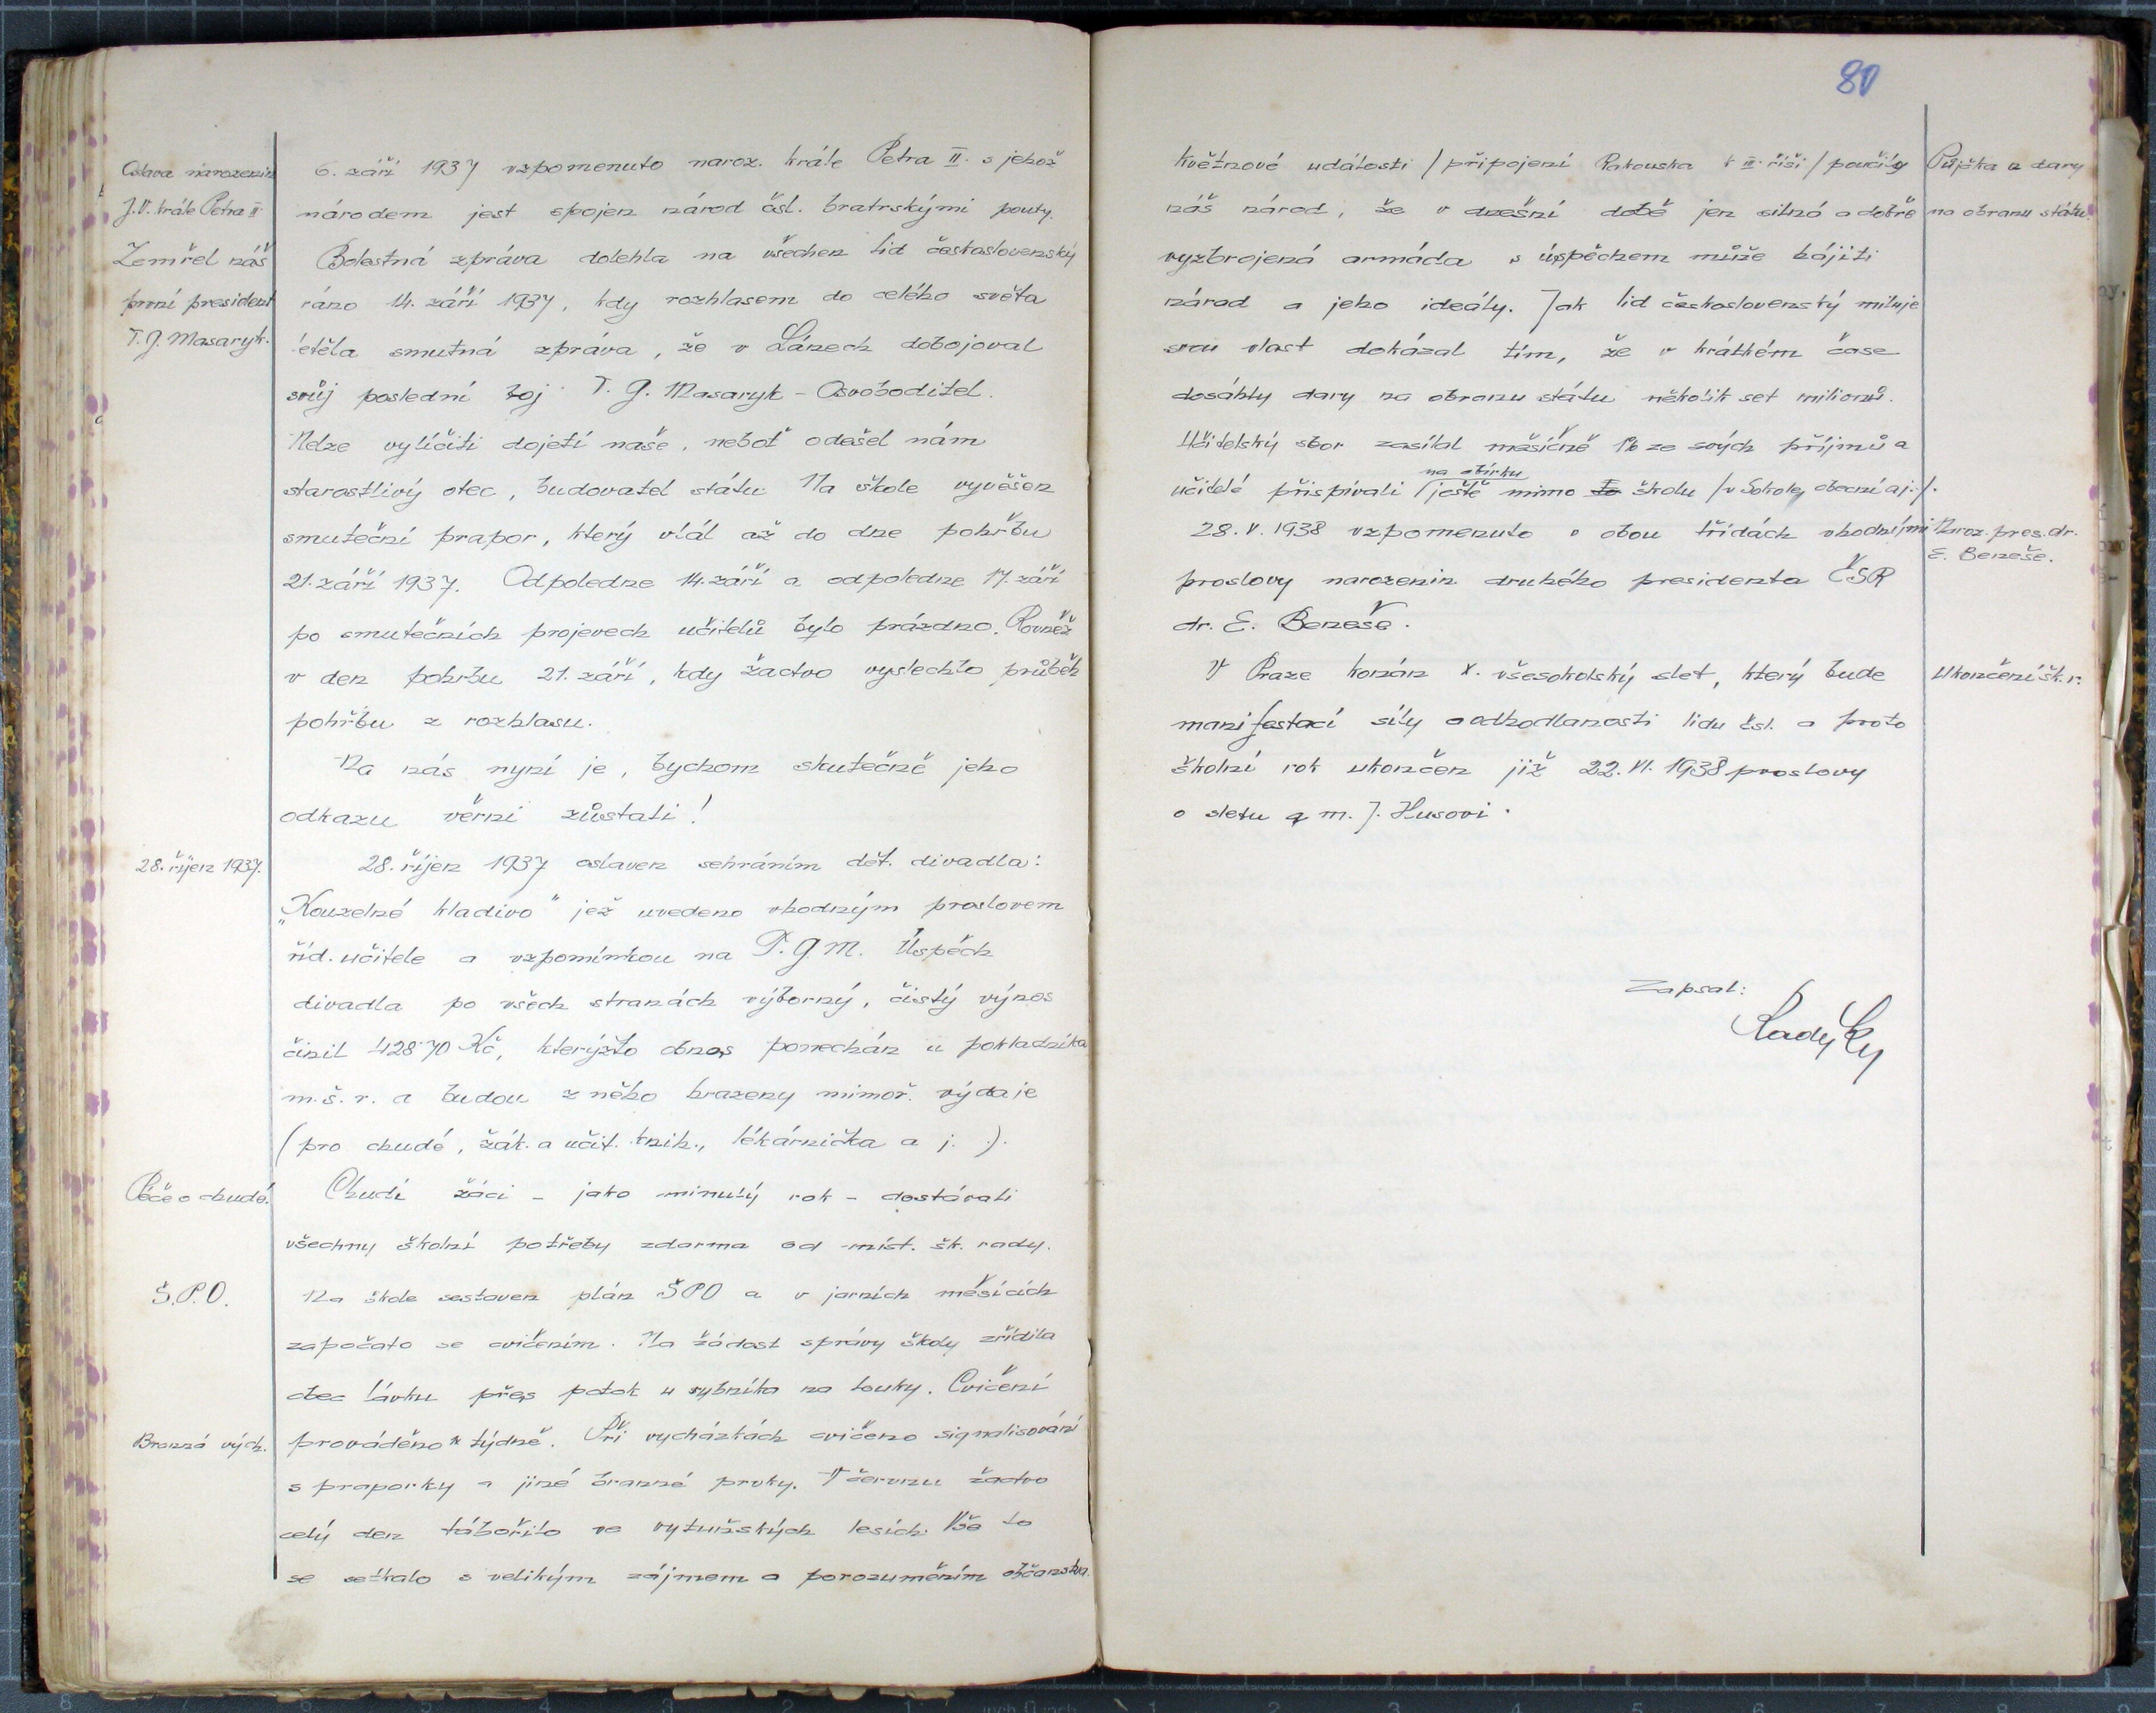 Oslava narozenin
J.V. krále Petra II.
6. září 1937 vzpomenuto naroz. krále Petra II. s jehož
národem jest spojen národ čsl. bratrskými pouty.
Zemřel náš
první president
T. G. Masaryk.
Bolestná zpráva dolehla na všechen lid československý
ráno 14. září 1937, kdy rozhlasem do celého světa
letěla smutná zpráva, že v Lánech dobojoval
svůj poslední boj T. G. Masaryk - Osvoboditel.
Nelze vylíčiti dojetí naše, neboť odešel nám
starostlivý otec, budovatel státu. Na škole vyvěšen
smuteční prapor, který vlál až do dne pohřbu
21. září 1937. Odpoledne 14. září a odpoledne 17. září
po smutečních projevech učitelů bylo prázdno. Rovněž
v den pohřbu 21. září, kdy žactvo vyslechlo průběh
pohřbu z rozhlasu.
Na nás nyní je, bychom skutečně jeho
odkazu věrni zůstali!
28. říjen 1937.
28. říjen 1937 oslaven sehráním dět. divadla:
„Kouzelné kladivo" jež uvedeno vhodným proslovem
říd. učitele a vzpomínkou na T. G. M. Úspěch
divadla po všech stranách výborný, čistý výnos
činil 428·70 Kč, kterýžto obnos ponechán u pokladníka
m. š. r. a budou z něho hrazeny mimoř. výdaje
(pro chudé, žák. a učit. knih., lékárnička a j. ).
Péče o chudé.
Chudí žáci - jako minulý rok - dostávali
všechny školní potřeby zdarma od míst. šk. rady.
Š.P.O.
Na škole sestaven plán ŠPO a v jarních měsících
započato se cvičením. Na žádost správy školy zřídila
obec lávku přes potok u rybníka na louky. Cvičení
Branná vých.
prováděno týdně. Při vycházkách cvičeno signalisování
s praporky a jiné branné prvky. V červnu žactvo
celý den tábořilo ve lesích. Vše to
se setkalo s velikým zájmem a porozuměním občanstva.
80
Květnové události / připojení Rakouska k III. říši / poučily
náš národ, že v dnešní době jen silná a dobře
vyzbrojená armáda s úspěchem může hájiti
národ a jeho ideály. Jak lid československý miluje
svou vlast dokázal tím, že v krátkém čase
dosáhly dary na obranu státu několik set milionů.
Učitelský sbor zasílal měsíčně 1% ze svých příjmů a
na sbírku
učitelé přispívali ještě mimo to školu / v Sokole, obecní aj. /.
Půjčka a dary
na obranu státu.
28. V. 1938 vzpomenuto v obou třídách vhodnými
proslovy narozenin druhého presidenta ČSR
dr. E. Beneše.
Naroz. pres. dr.
E. Beneše.
V Praze konán X. všesokolský slet, který bude
manifestací síly a odhodlanosti lidu čsl. a proto
školní rok ukončen již 22. VI. 1938 proslovy
o sletu a m. J. Husovi.
Ukončení šk. r.
Zapsal: